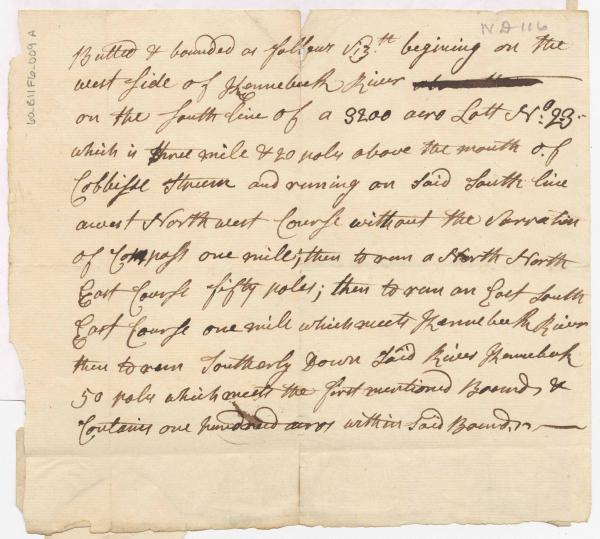 N D 116
6a.B11F16-009 A
Butted & bounded as follows Viz.th begining on the
west side of Kennebeck River
on the south line of a 3200 acre Lott No. 23
which is three mile & 20 poles above the mouth of
Cobbisse Stream and running on said South line
a west North west Course without the Varration
of Compass one mile; then to run a North North
East Course fifty poles; then to run an East South
East Course one mile which meets Kennebeck River
then to run Southerly Down Said River Kennebeck
50 poles which meets the first mentioned Bounds &
Contains one hundred acres within said Bounds